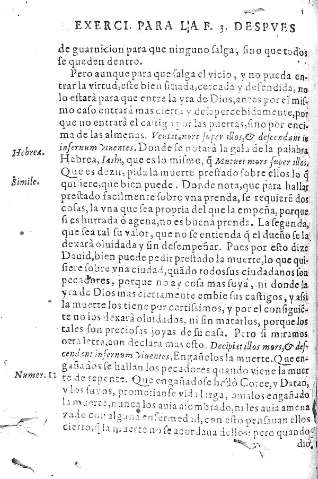 EXERCI. PARA LA F. 3. DESPVES
de guarnicion para que ninguno salga, sino que todos
se queden dentro.
Pero aunque para que salga el vicio, y no pueda en-
trar la virtud, este bien sitiada, cercada y defendida, no
lo estará para que entre la yra de Dios, antes por el mis-
mo caso entrará mas cierta y desapercebidamente, por
que no entrará el castigo por las puertas, sino por enci-
ma de las almenas. Veniat mors super illos, & descendant in
infernum viuentes. Donde se notará la gala de la palabra
Hebrea.
Hebrea, que es lo mismo, q̃ Mutuet mors super illos,
Que es dezir, pida la muerte prestado sobre ellos lo q̃
Simile.
quisiere, que bien puede. Donde nota, que para hallar
prestado facilmente sobre vna prenda, se requierē dos
cosas, la vna que sea propria del que la empeña, porque
si es hurtada ò agena, no es buena prenda. La segunda,
que sea tal su valor, que no se entienda q̃ el dueño se la
dexará oluidada y sin desempeñar. Pues por esto dize
Dauid, bien puede pedir prestado la muerte, lo que qui-
siere sobre vna ciudad, quādo todos sus ciudadanos son
pecadores, porque no ay cosa mas suya, ni donde la
yra de Dios mas ciertamente embie sus castigos, y assi
la muerte los tiene por certissimos, y por el consiguiē-
te no los dexará oluidados, ni sin matarlos, porque los
tales son preciosas joyas de su casa. Pero si miramos
otra letra, aun declara mas esto. Decipiat illos mors, & des-
cendant infernum viuentes, Engañelos la muerte. Que en-
gañados se hallan los pecadores quando viene la muer
Numer.
te de repente. Que engañados se halló Coree, y Datan,
y los suyos, prometianse vida larga, ni los
la muerte, nunca los auia assombrado, ni les auia amena
zado con alguna enfermedad, con esto pensauan ellos
cierto, q̃ la muerte no se acordaua dellos: pero quando
dio